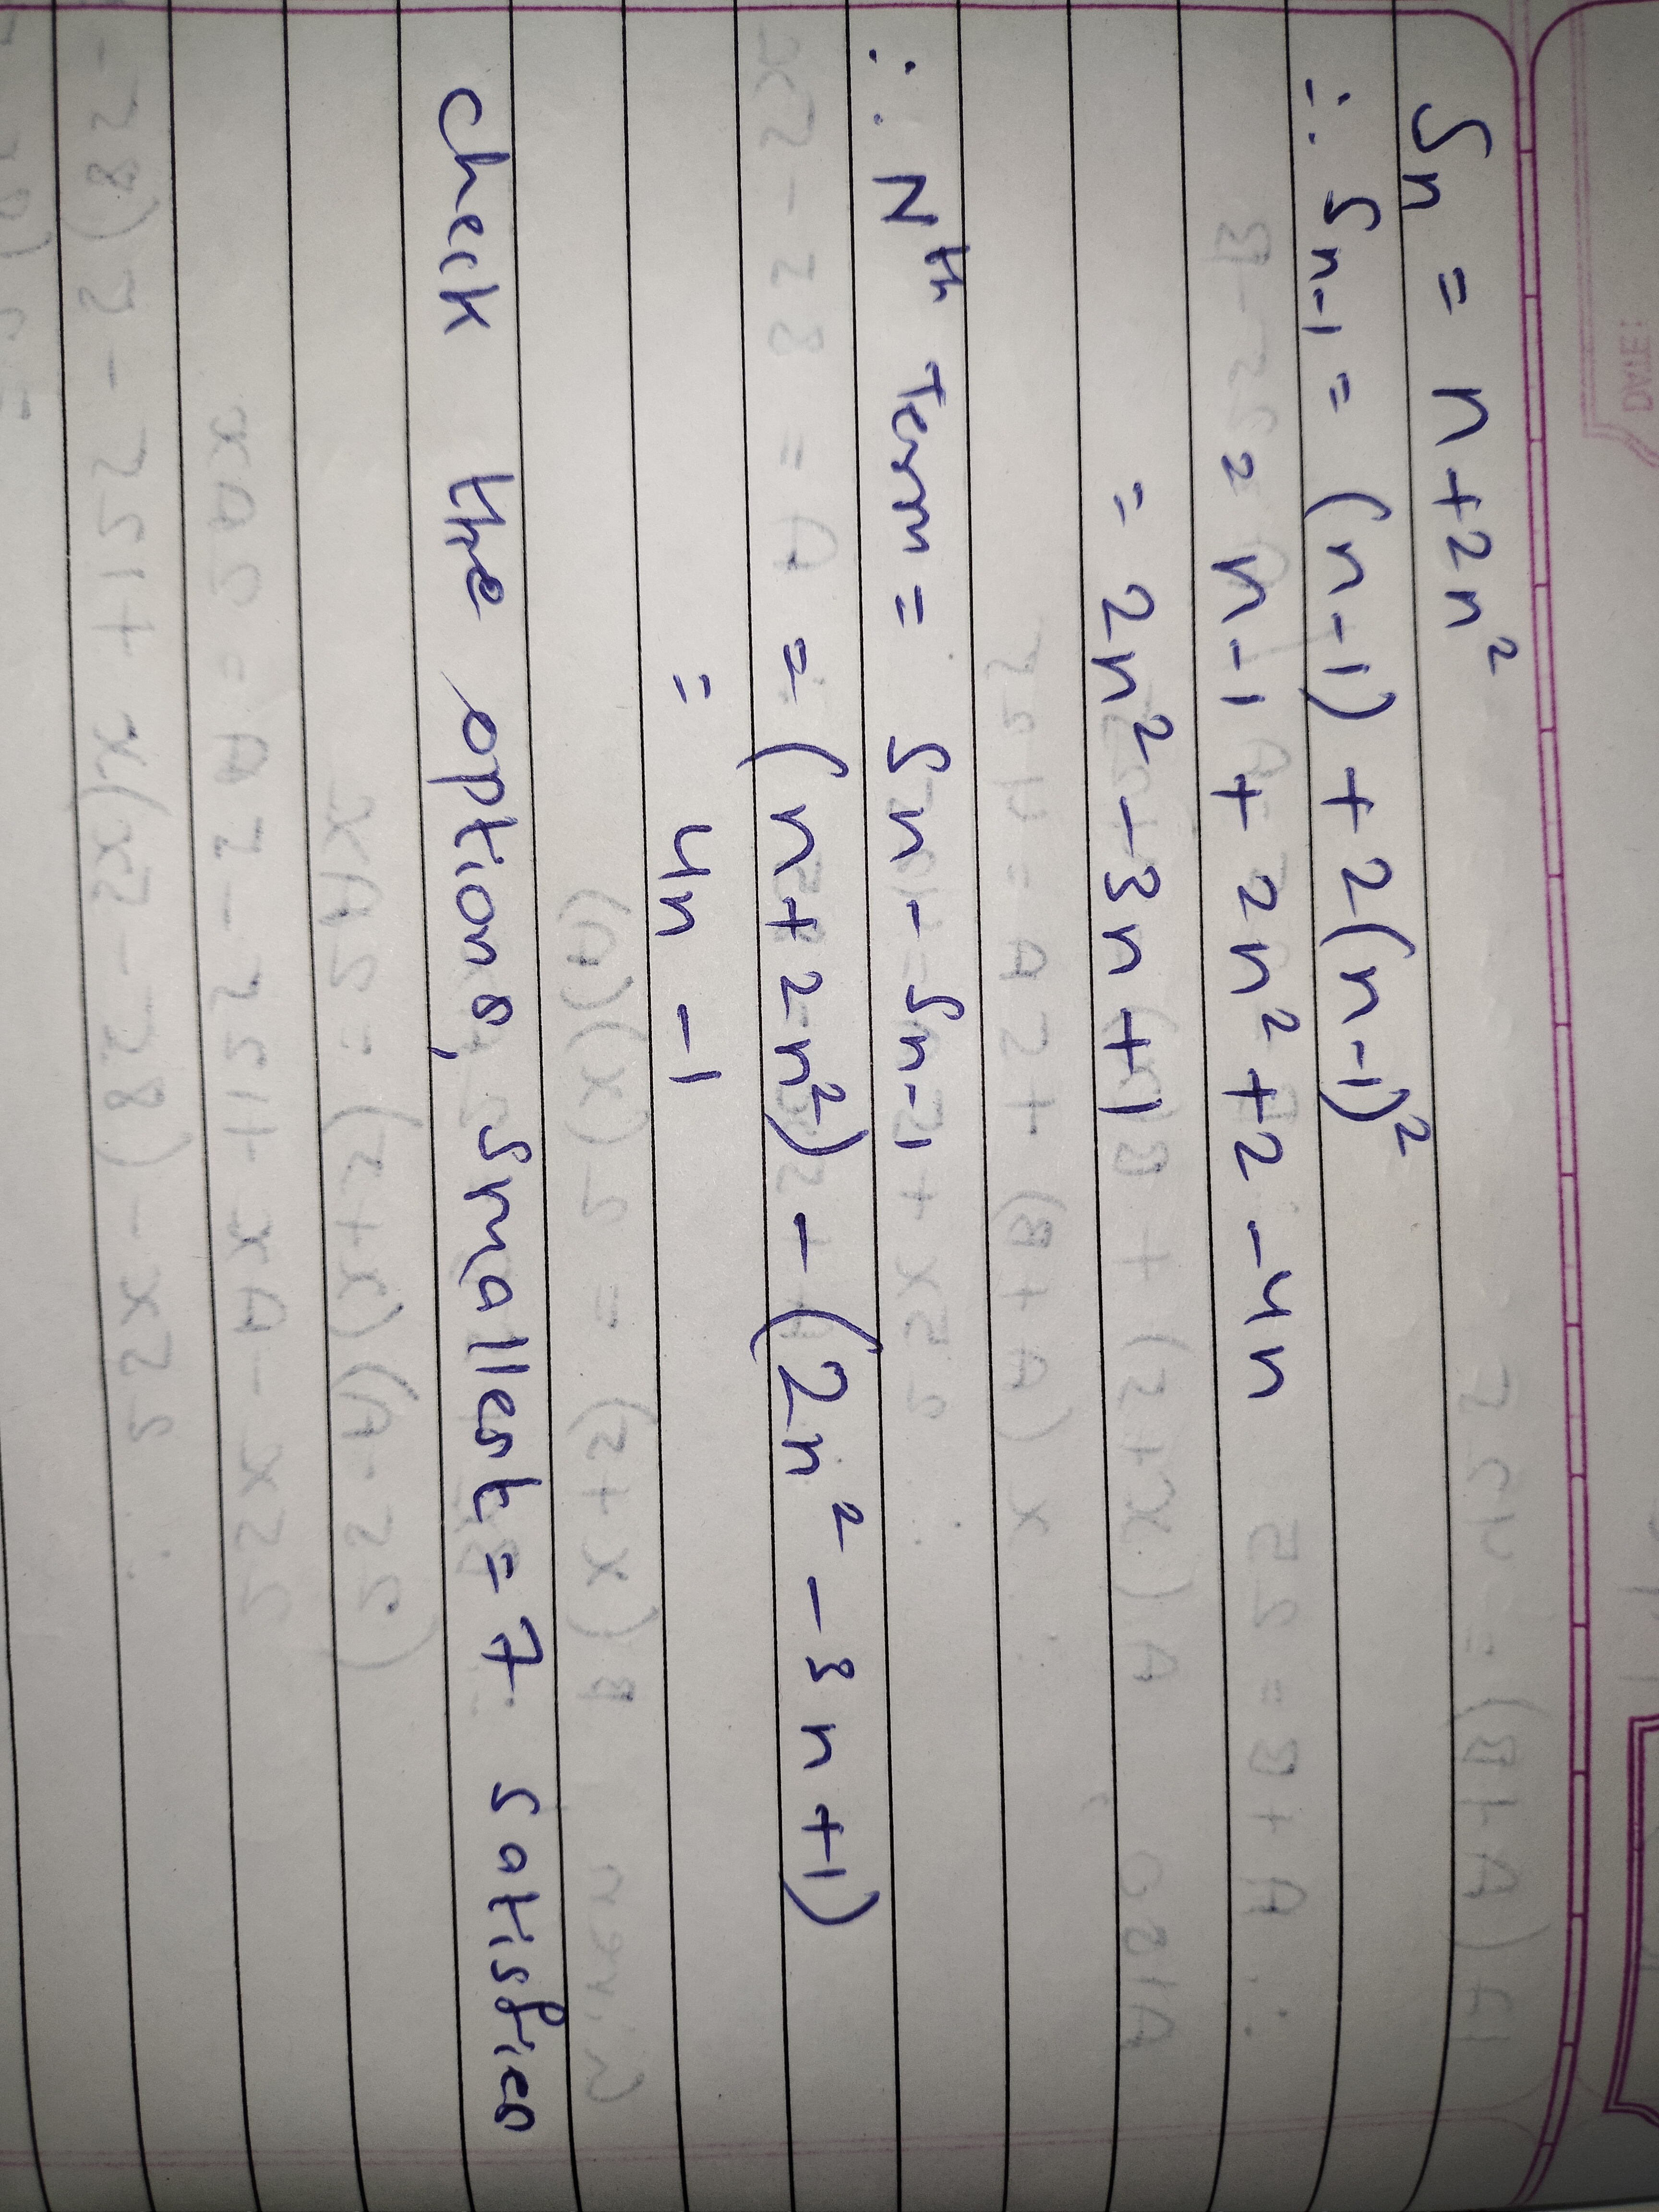 Sn = n + 2n²
∴ Sn-1 = (n-1) + 2(n-1)²
= n-1 + 2n² + 2 - 4n
= 2n² - 3n + 1
∴ Nth Term = Sn - Sn-1
= (n + 2n²) - (2n² - 3n + 1)
= 4n - 1
Check the options, Smallest = 7 satisfies
DATE: